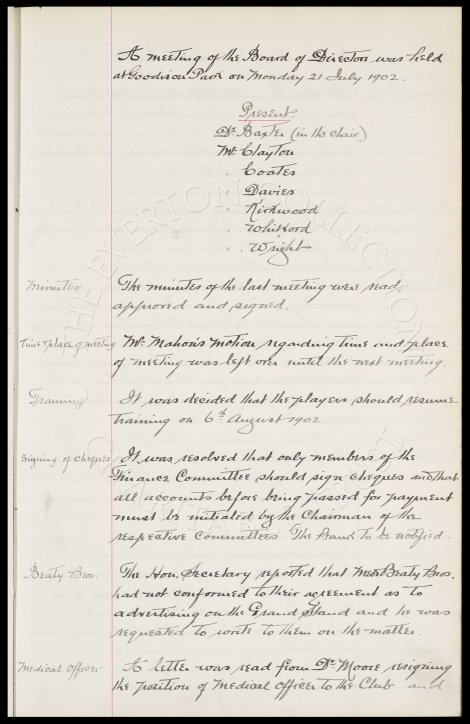 A meeting of the Board of Directors was held
at Goodison Park on Monday 21 July 1902.
Present
Dr. Baxter (in the chair)
Mr. Clayton
" Coates
Davies
" Kirkwood
" Whitford
" Wright
Minutes
The minutes of the last meeting were read,
approved and signed.
Time & place of meeting
Mr. Mahon's motion regarding time and place
of meeting was left over until the next meeting.
Training
It was decided that the players should resume
training on 6th August 1902.
Signing of cheques
It was resolved that only members of the
Finance Committee should sign cheques and that
all accounts before being passed for payment
must be initialed by the Chairman of the
respective Committees. The Bank to be notified.
Beaty Bros.
The Hon. Secretary reported that Messrs Beaty Bros.
had not conformed to their agreement as to
advertising on the Grand Stand and he was
requested to write to them on the matter.
Medical Officer
A letter was read from Dr. Moore resigning
the position of Medical Officer to the Club and
THE EVERTON COLLECTION